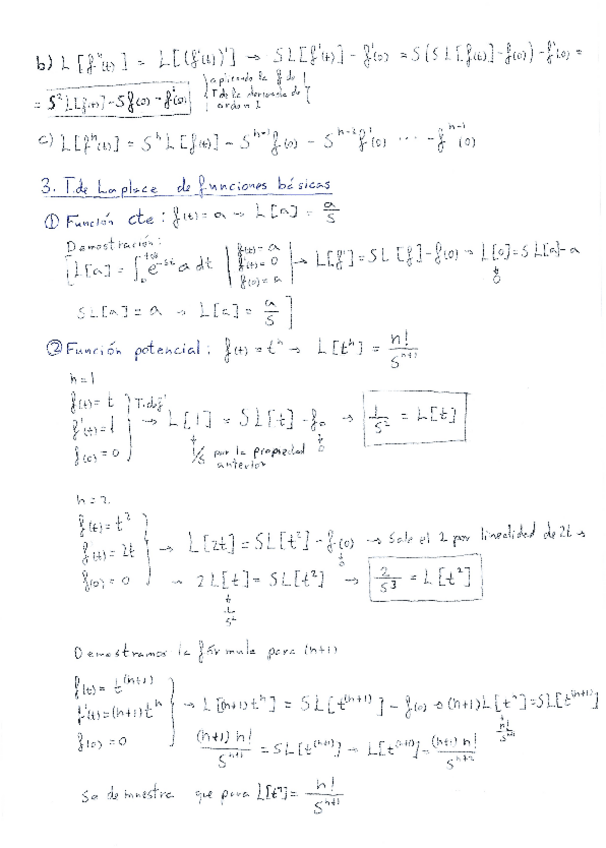 b) L[f''(t)] = L[(f'(t))'] → SL[f'(t)] - f'(0) = S(SL[f(t)] - f(0)) - f'(0) =
= S²L[f(t)] - Sf(0) - f'(0) aplicando la f de T de la derivada de orden 1
c) L[fⁿ(t)] = SⁿL[f(t)] - Sⁿ⁻¹f(0) - Sⁿ⁻²f'(0) ... - fⁿ⁻¹(0)
3. T. de Laplace de funciones básicas
① Función cte: f(t) = a → L[a] = a/S
Demostración:
[L[a] = ∫₀^{+∞} e^{-st} a dt | f(t) = a f'(t) = 0 f(0) = a | → L[f'] = SL[f] - f(0) → L[0] = SL[a] - a
0
SL[a] = a → L[a] = a/S ]
② Función potencial: f(t) = tⁿ → L[tⁿ] = n!/Sⁿ⁺¹
n=1
f(t) = t
f'(t) = 1 → L[1] = SL[t] - f₀ → 1/S² = L[t]
f(0) = 0 1/S por la propiedad anterior 0
n=2
f(t) = t²
f'(t) = 2t → L[2t] = SL[t²] - f(0) → Sale el 2 por linealidad de 2t →
f(0) = 0 → 2L[t] = SL[t²] → 2/S³ = L[t²]
1/S²
Demostramos la fórmula para (n+1)
f(t) = t⁽ⁿ⁺¹⁾
f'(t) = (n+1)tⁿ → L[(n+1)tⁿ] = SL[t⁽ⁿ⁺¹⁾] - f(0) → (n+1)L[tⁿ] = SL[t⁽ⁿ⁺¹⁾]
n!/Sⁿ⁺¹
f(0) = 0 (n+1) n!/Sⁿ⁺¹ = SL[t⁽ⁿ⁺¹⁾] → L[t⁽ⁿ⁺¹⁾] = (n+1) n!/Sⁿ⁺²
Se demuestra que para L[tⁿ] = n!/Sⁿ⁺¹